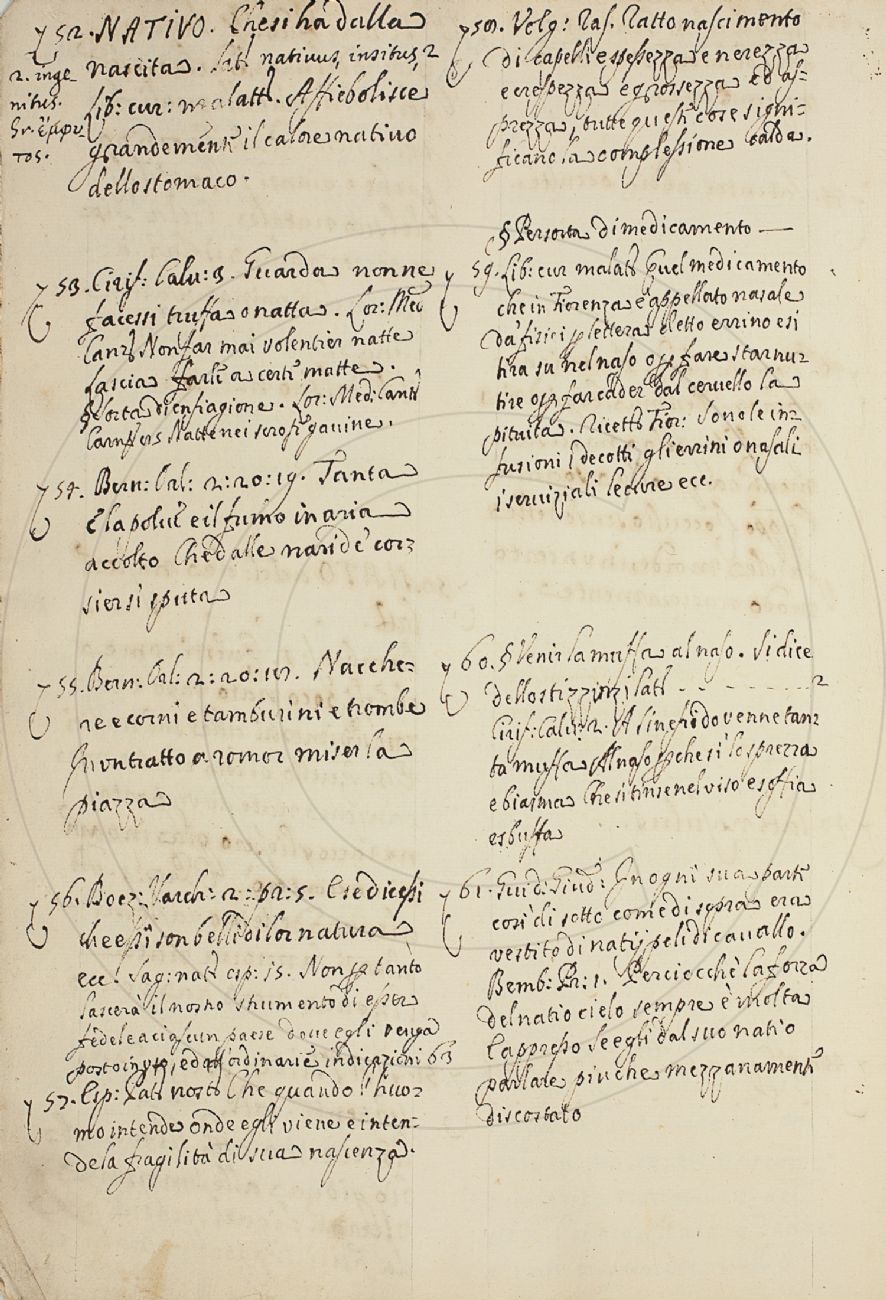 52. NATIVO. Che si há dalla
nascita. Lat. nativus, insitus, 2
2. inge
nitus.
Gr. ἔμφυ
τος.
Lib: cur: malatt. Affiebolisce
grandemente il calore nativo
dello stomaco.
53. Cirif: Calu: 3. Guarda non ne
facessi truffa o natta. Lor: Med
Canz. Non far mai volentier natte
Lascia farle a certi matte.
§ Sorta di enfiagione. Lor: Med: Canz
Natte nei scrofe gavine.
54. Bern: Cal: 2: 20: 19. Tanta
È la polve e il fumo in aria
accolto Che dalle naride cor=
sier si sputa
55. Bern: Cal: 2: 20: Nacche=
re e corni e tamburini e trombe
In un tratto a romor miser la
piazza
56. Boez: Varch: 2: pr: 5. E se dicessi
che essi son belli di lor natura
ecc. Sag: nat: esp: 15. Non per tanto
lascerà il nostro strumento di esser
fedele a ciascun paese dove egli venga
posto in uso, ed all'ordinarie indicazioni 63
57. Esp: Pat: nost: Che quando l'huo=
mo intende onde egli viene e inten=
de la fragilità di sua nascenza.
58. Volg: Ras. Ratto nascimento
di capelli e spessezza e nerezza
e crespezza e grossezza ed as=
prezza, tutte queste cose signi=
ficano la complessione calda.
§ Per sorta di medicamento —
59. Lib: cur malatt. Quel medicamento
che in Fiorenza è appellato nasale
da' fisici p lettera è detto errino e si
tira su nel naso o per fare starnu=
tire o per far cader dal cervello la
pituita. Ricett. Fior: Sono le in=
fusioni i decotti gli errini o nasali
i serviziali le cure ecc.
60. § Venir la muffa al naso. Si dice
dello stizzirsi Lat. - - - - - - 2
Cirif: Calu: 2. A Sinefido venne tan=
ta muffa Al naso perche si lo sprezza
e biasma Che si tinse nel viso e soffia
e sbuffa
61. Guid: Giud: In ogni sua parte
così di sotto come di sopra era
vestito di natij peli di cavallo.
Bemb: Pr: 1. Perciocchè la forza
del natio cielo sempre è molta
E appresso Se egli dal suo natio
parlare più che mezzanamente
discostato